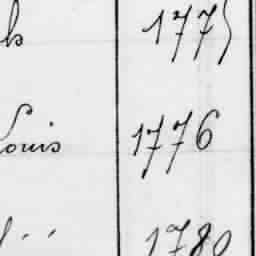 1775
Louis 1776
1780